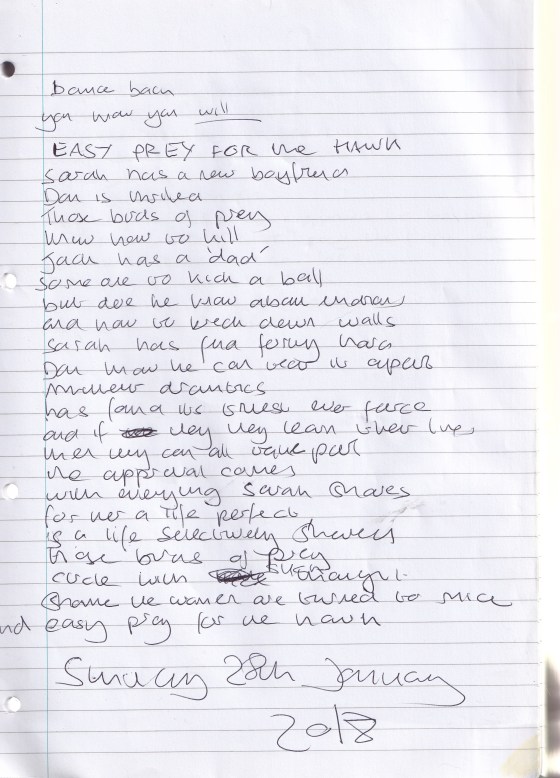 Dance back
you know you will
EASY PREY FOR the HAWK
Sarah has a new boyfriend
Dan is thrilled
Those birds of prey
know how to kill
Jack has a 'dad'
Someone to kick a ball
but does he know about
and how to break down walls
Sarah has found family hard
Dan how he can tear it apart
Amateur dramatics
has found its truest ever farce
and if they they learn their lines
then they can all take part
the approval comes
with everything Sarah shares
for her a life perfect
is a life selectively shared
Those birds of prey
circle with such
Shame the women are turned to mice
and easy prey for the hawk
Sunday 28th January
2018